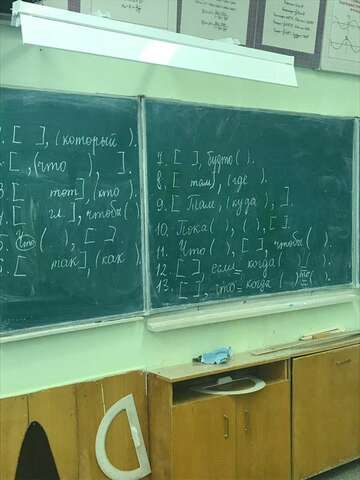 1. [ ], (который ).
2. [ , (что ), ].
3 [ тот], (кто ).
4 [ гл.], чтобы ( ).
5. Что ( ), [ ].
6 [ так], (как ).
7. [ ], будто ( ).
8. [ там], (где ).
9. [ Там, (куда ), ].
10. Пока ( ), ( ), [ ].
11. Что ( ), [ ], чтобы ( ).
12. [ ], если когда ( ) ( ).
13. [ ], что когда ( ) то ( ).